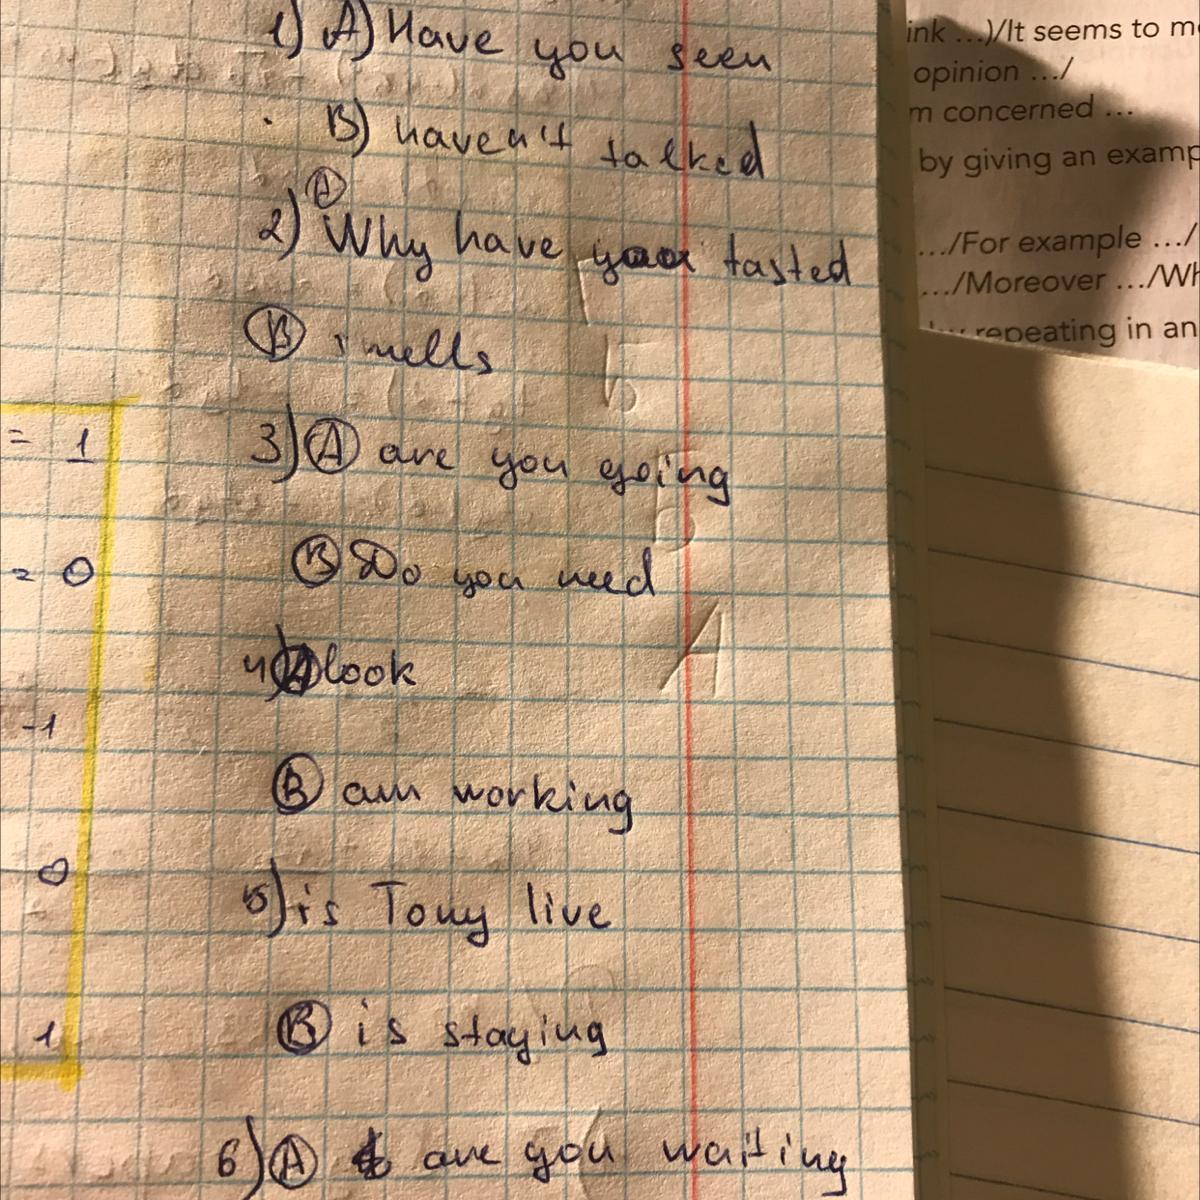 1) A) Have you seen
B) haven't talked
2) A Why have you tasted
B smells
3) A are you going
B Do you need
4) A look
B am working
5) is Tony live
B is staying
6) A are you waiting
= 1
= 0
-1
0
1
ink ...)/It seems to m
opinion .../
m concerned ...
by giving an examp
.../For example .../
.../Moreover .../Wh
repeating in an